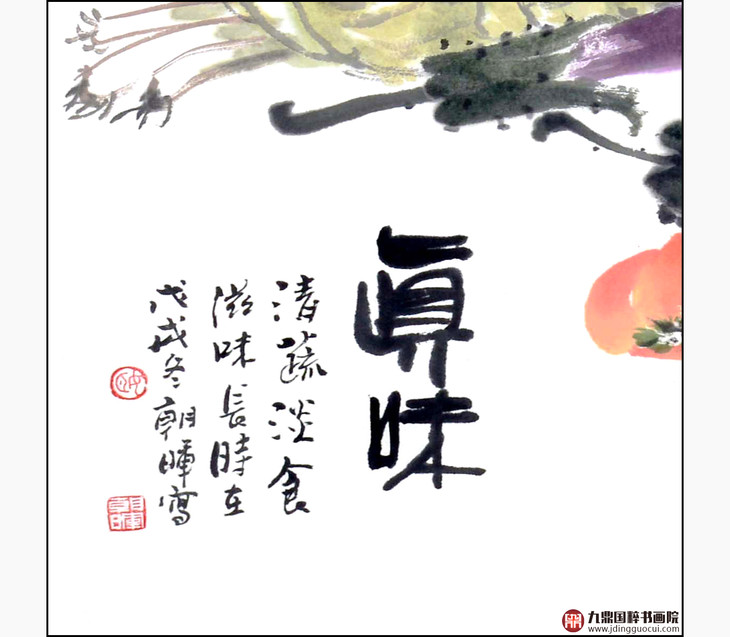 真味
清蔬淡食
滋味長時在
戊戌冬朝暉寫
九鼎国粹书画院
www.jdingguocui.com